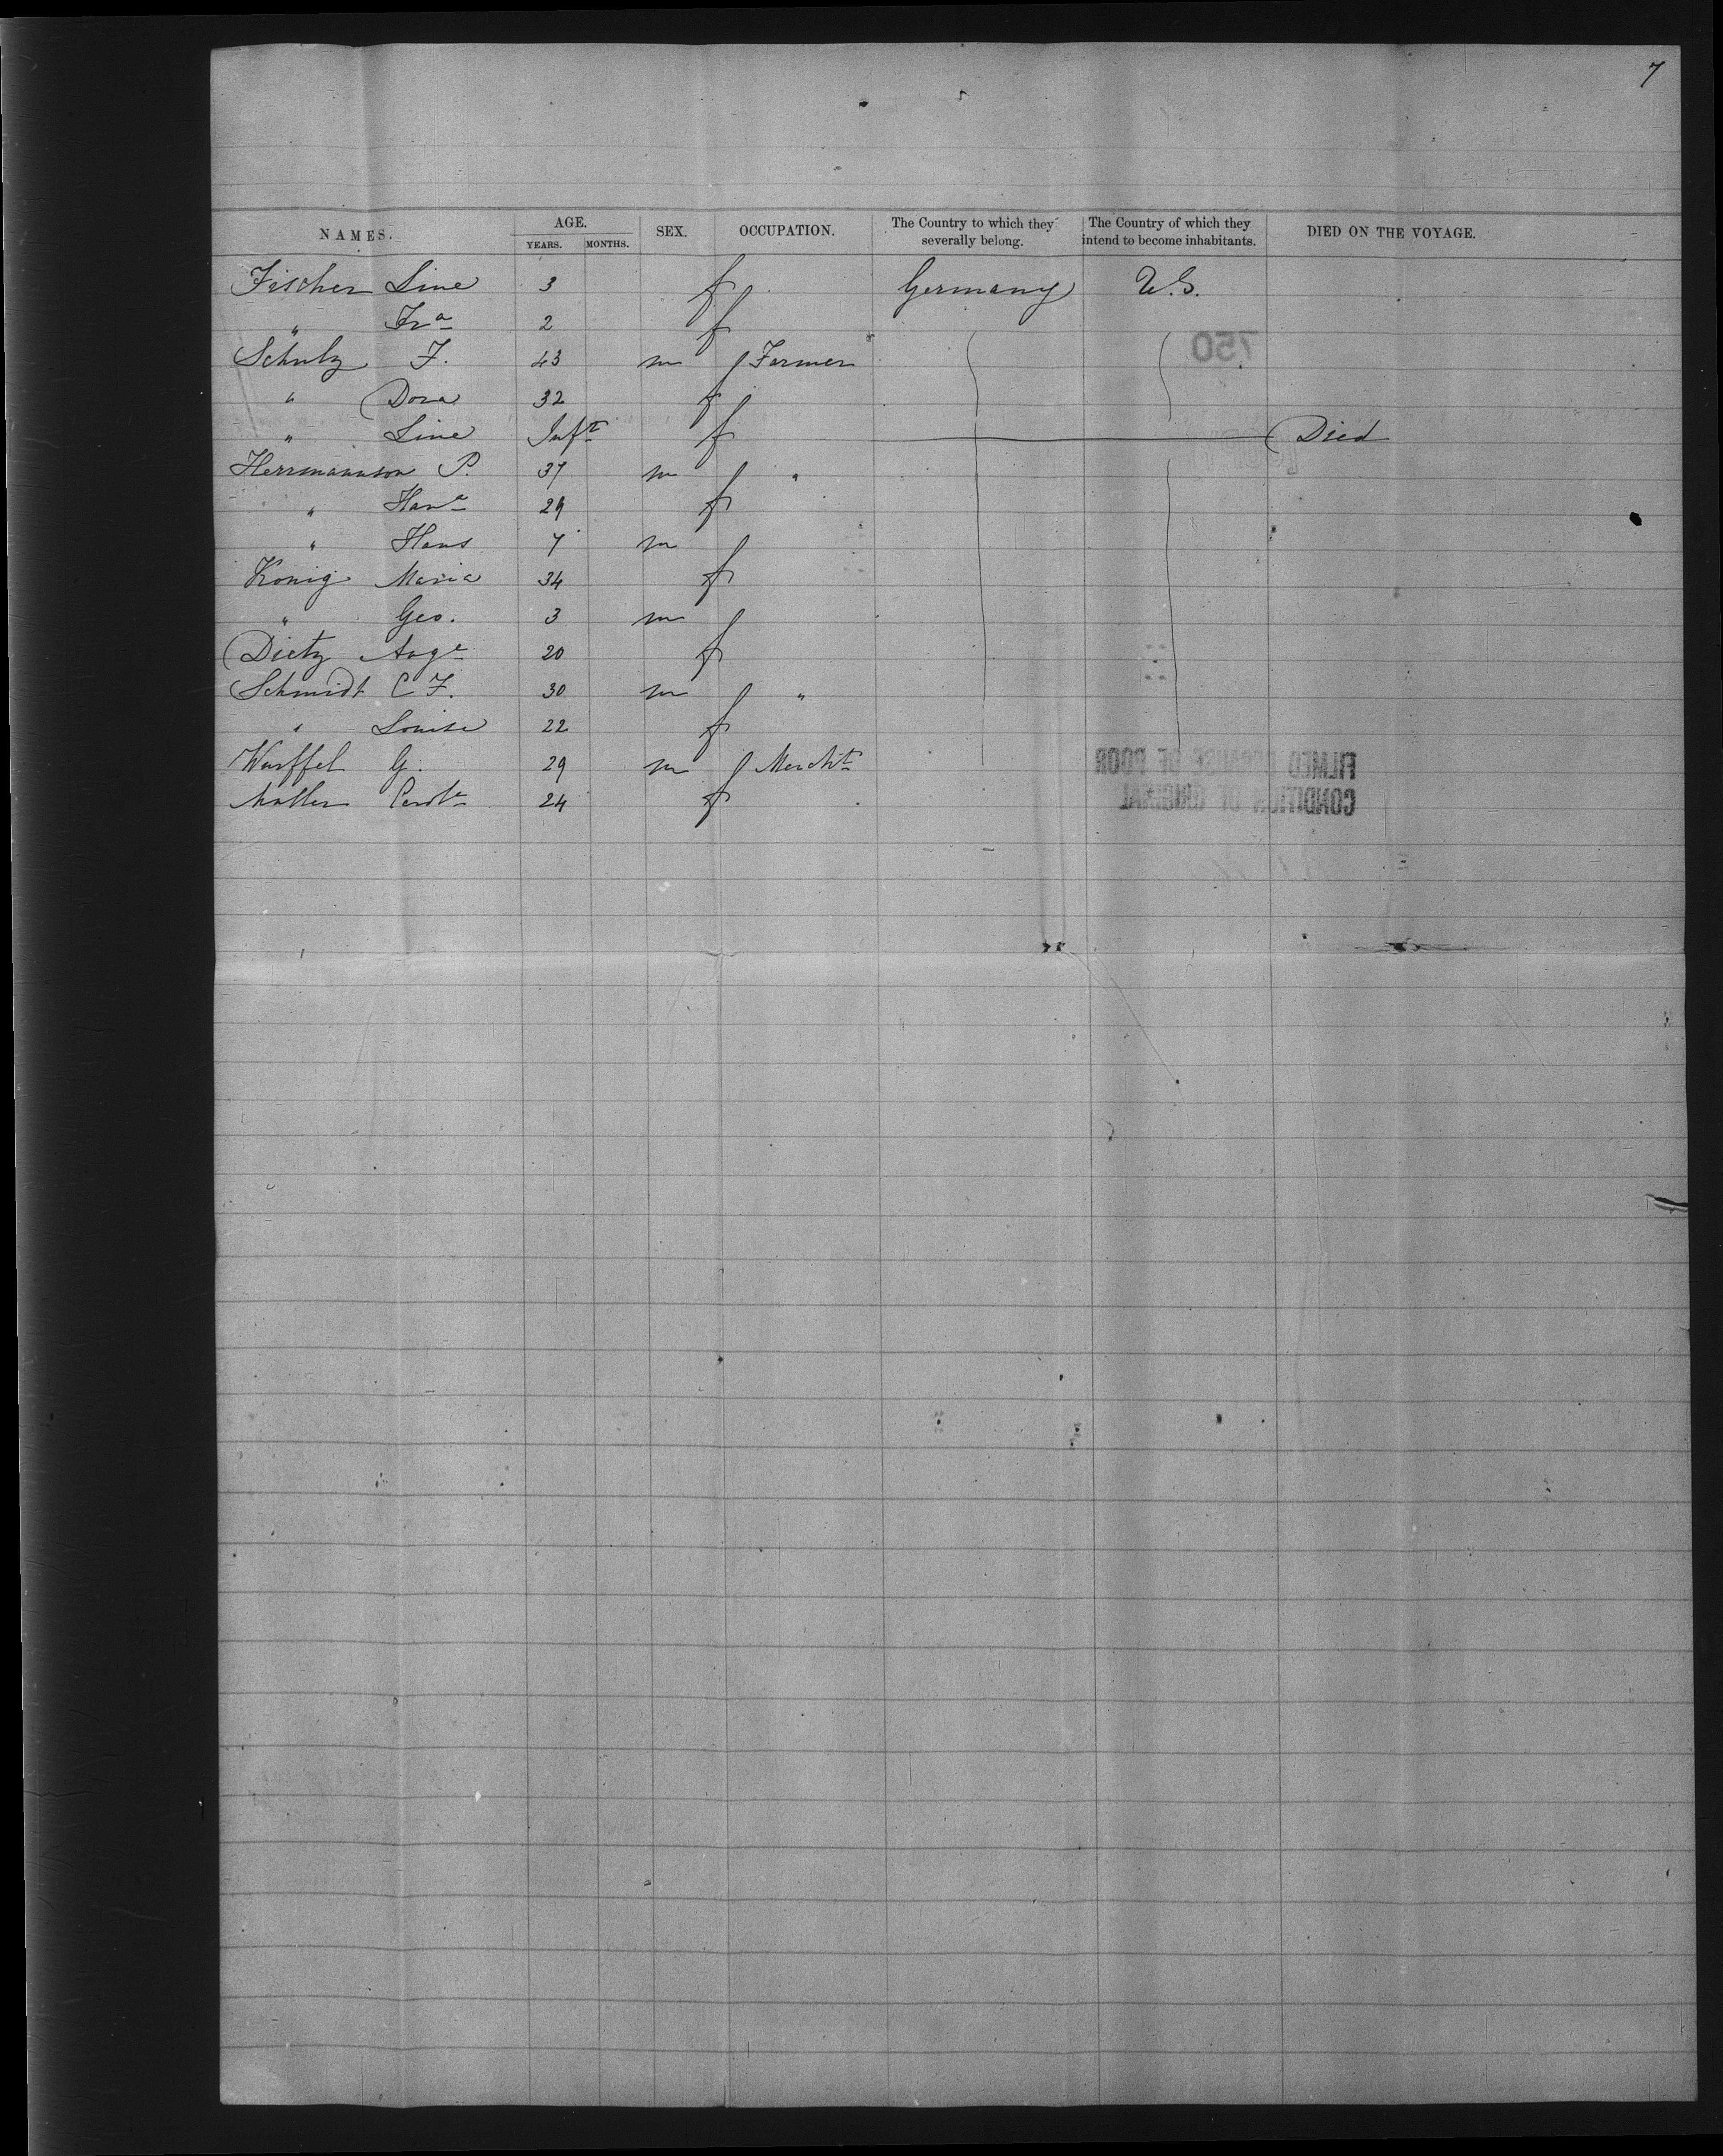 7
NAMES. AGE. YEARS. MONTHS. SEX. OCCUPATION. The Country to which they severally belong. The Country of which they intend to become inhabitants. DIED ON THE VOYAGE.
Fischer Line 3 f Germany U.S.
" Fra 2 f
Schulz F. 43 m Farmer
" Dora 32 f
" Line Inft f Died
Herrmannson P. 37 m "
" Hane 29 f
" Hans 7 m
Konig Maria 34 f
" Geo. 3 m
Dietz Auge 20 f
Schmidt C F. 30 m "
" Louise 22 f
Wurffel G. 29 m Mercht
24 f
750
FILMED BECAUSE OF POOR
CONDITION OF ORIGINAL